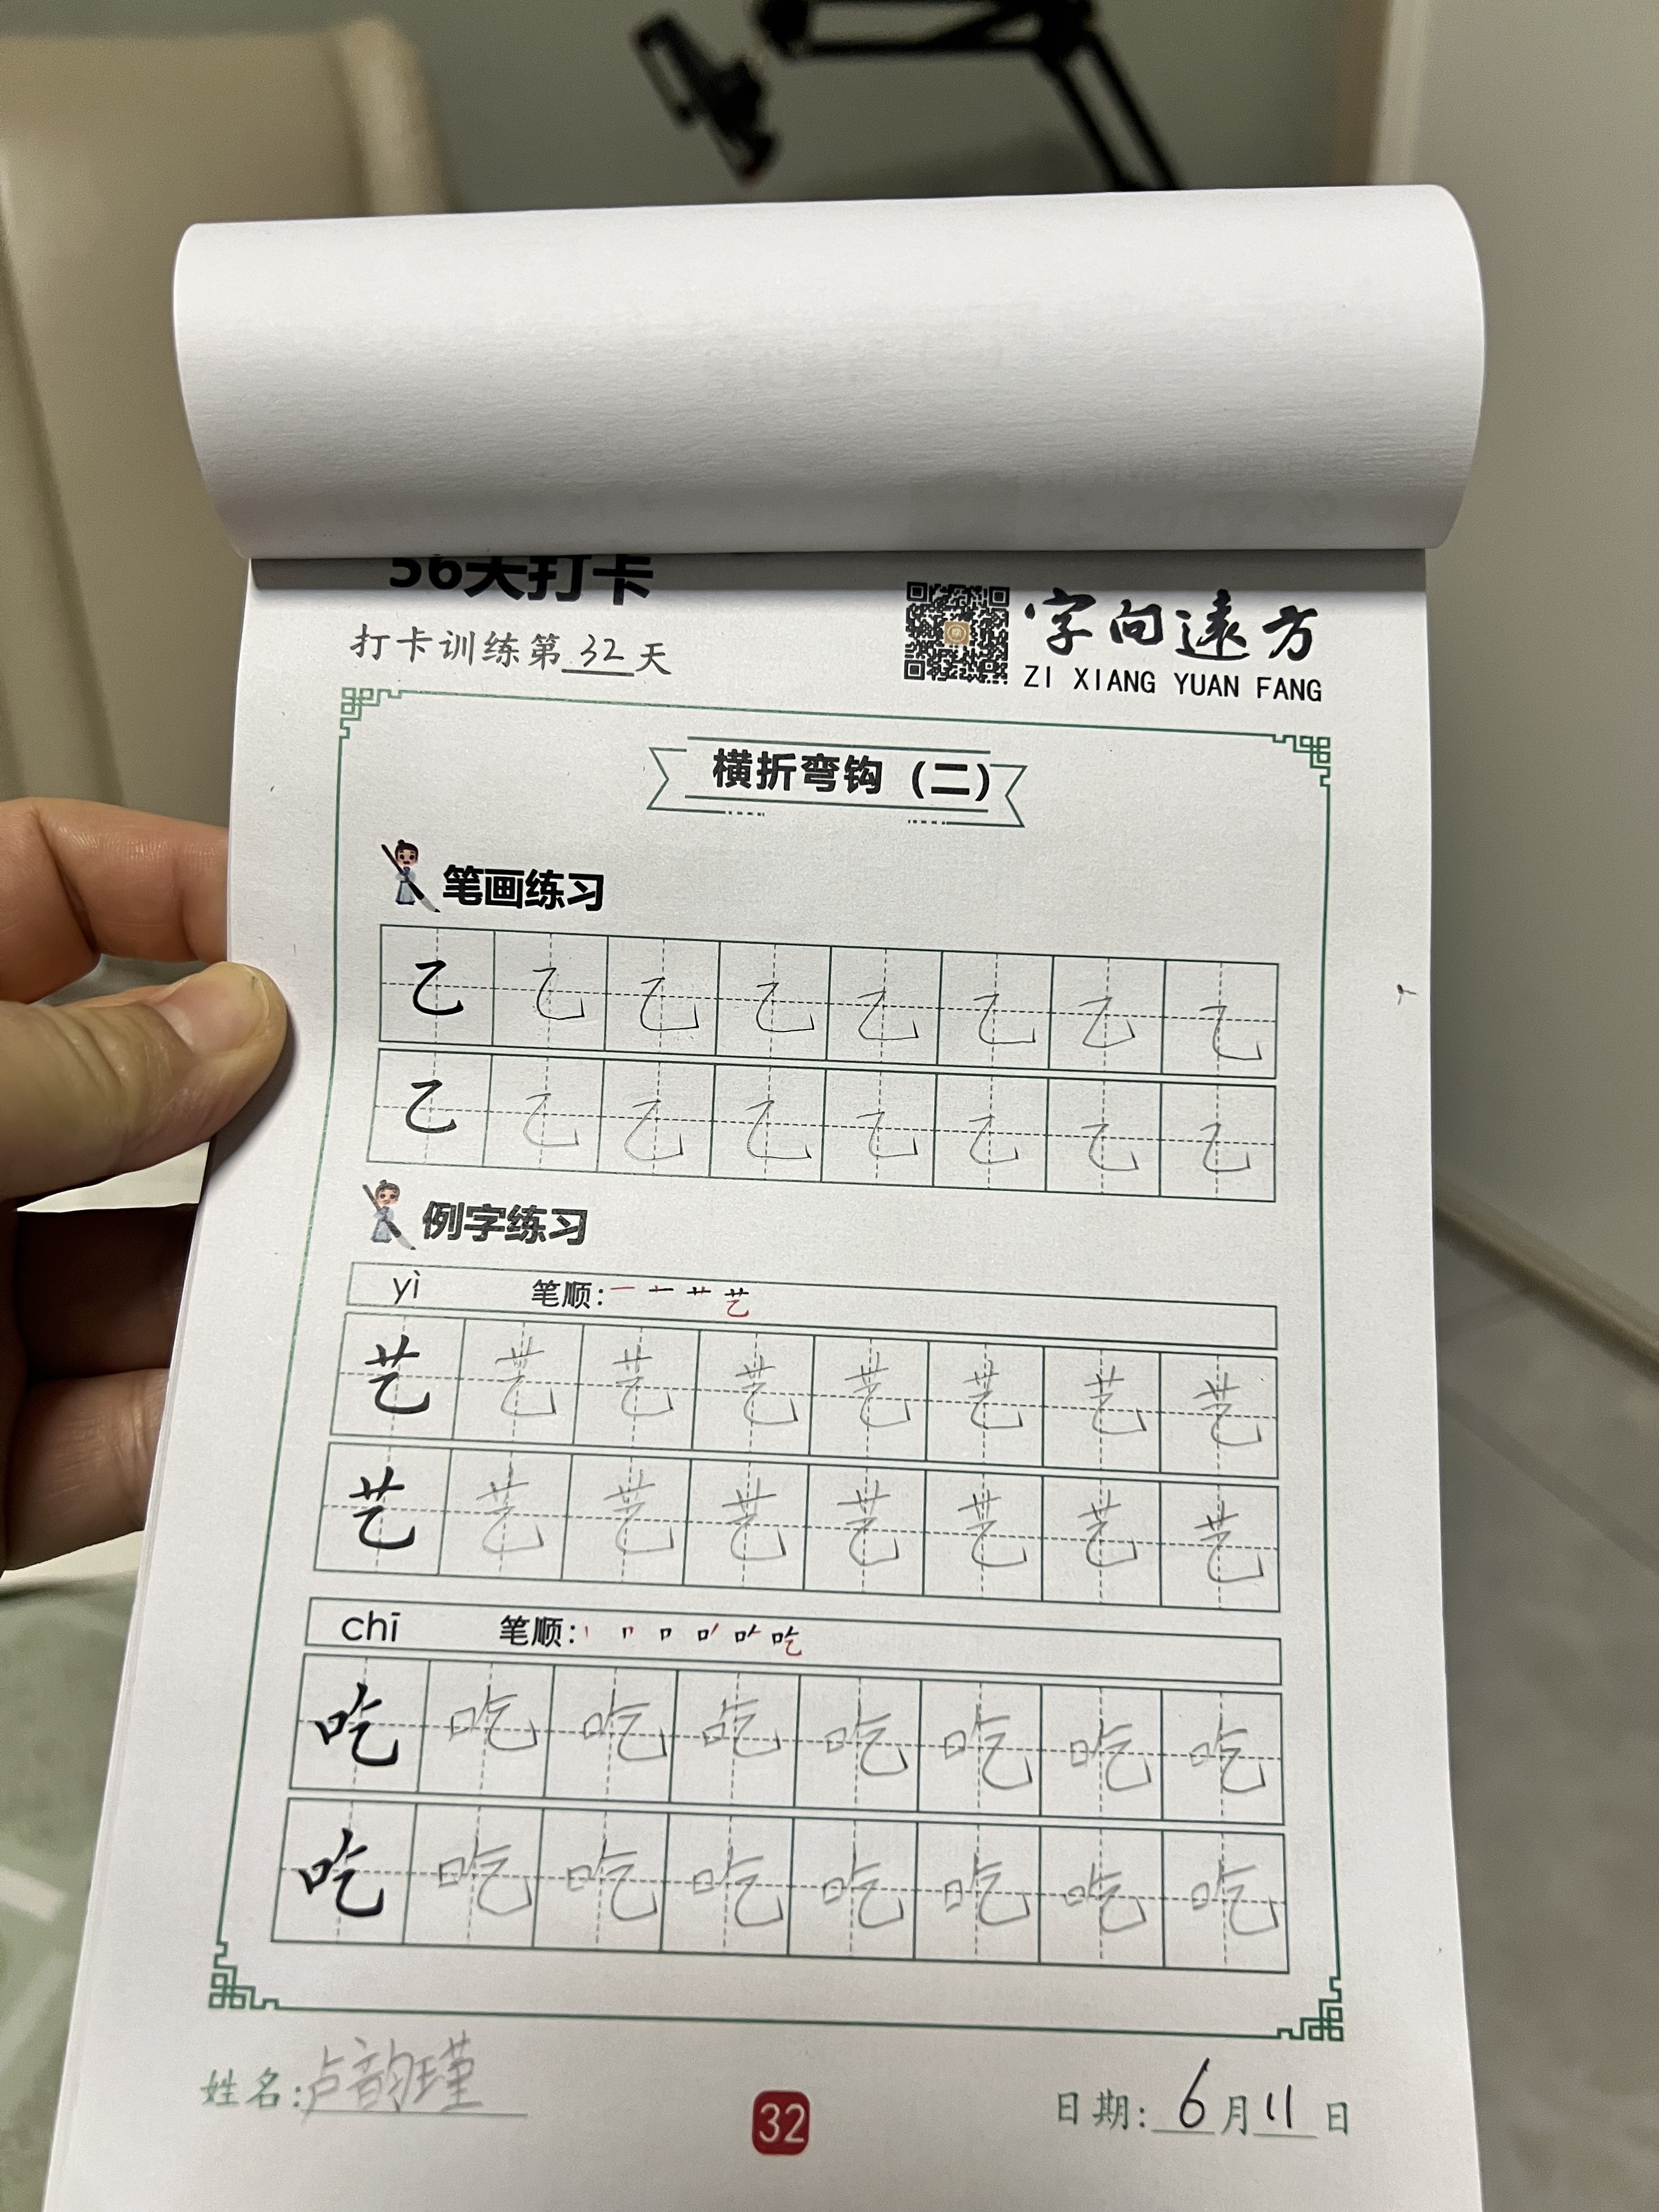 56天打卡
打卡训练第32天
字向遠方
ZI XIANG YUAN FANG
横折弯钩（二）
笔画练习
乙 乙 乙 乙 乙 乙 乙 乙
乙 乙 乙 乙 乙 乙 乙 乙
例字练习
yì 笔顺: 一 十 艹 艺
艺 艺 艺 艺 艺 艺 艺 艺
艺 艺 艺 艺 艺 艺 艺 艺
chī 笔顺:
吃 吃 吃 吃 吃 吃 吃 吃
吃 吃 吃 吃 吃 吃 吃 吃
姓名:卢韵瑾
32
日期: 6月11日